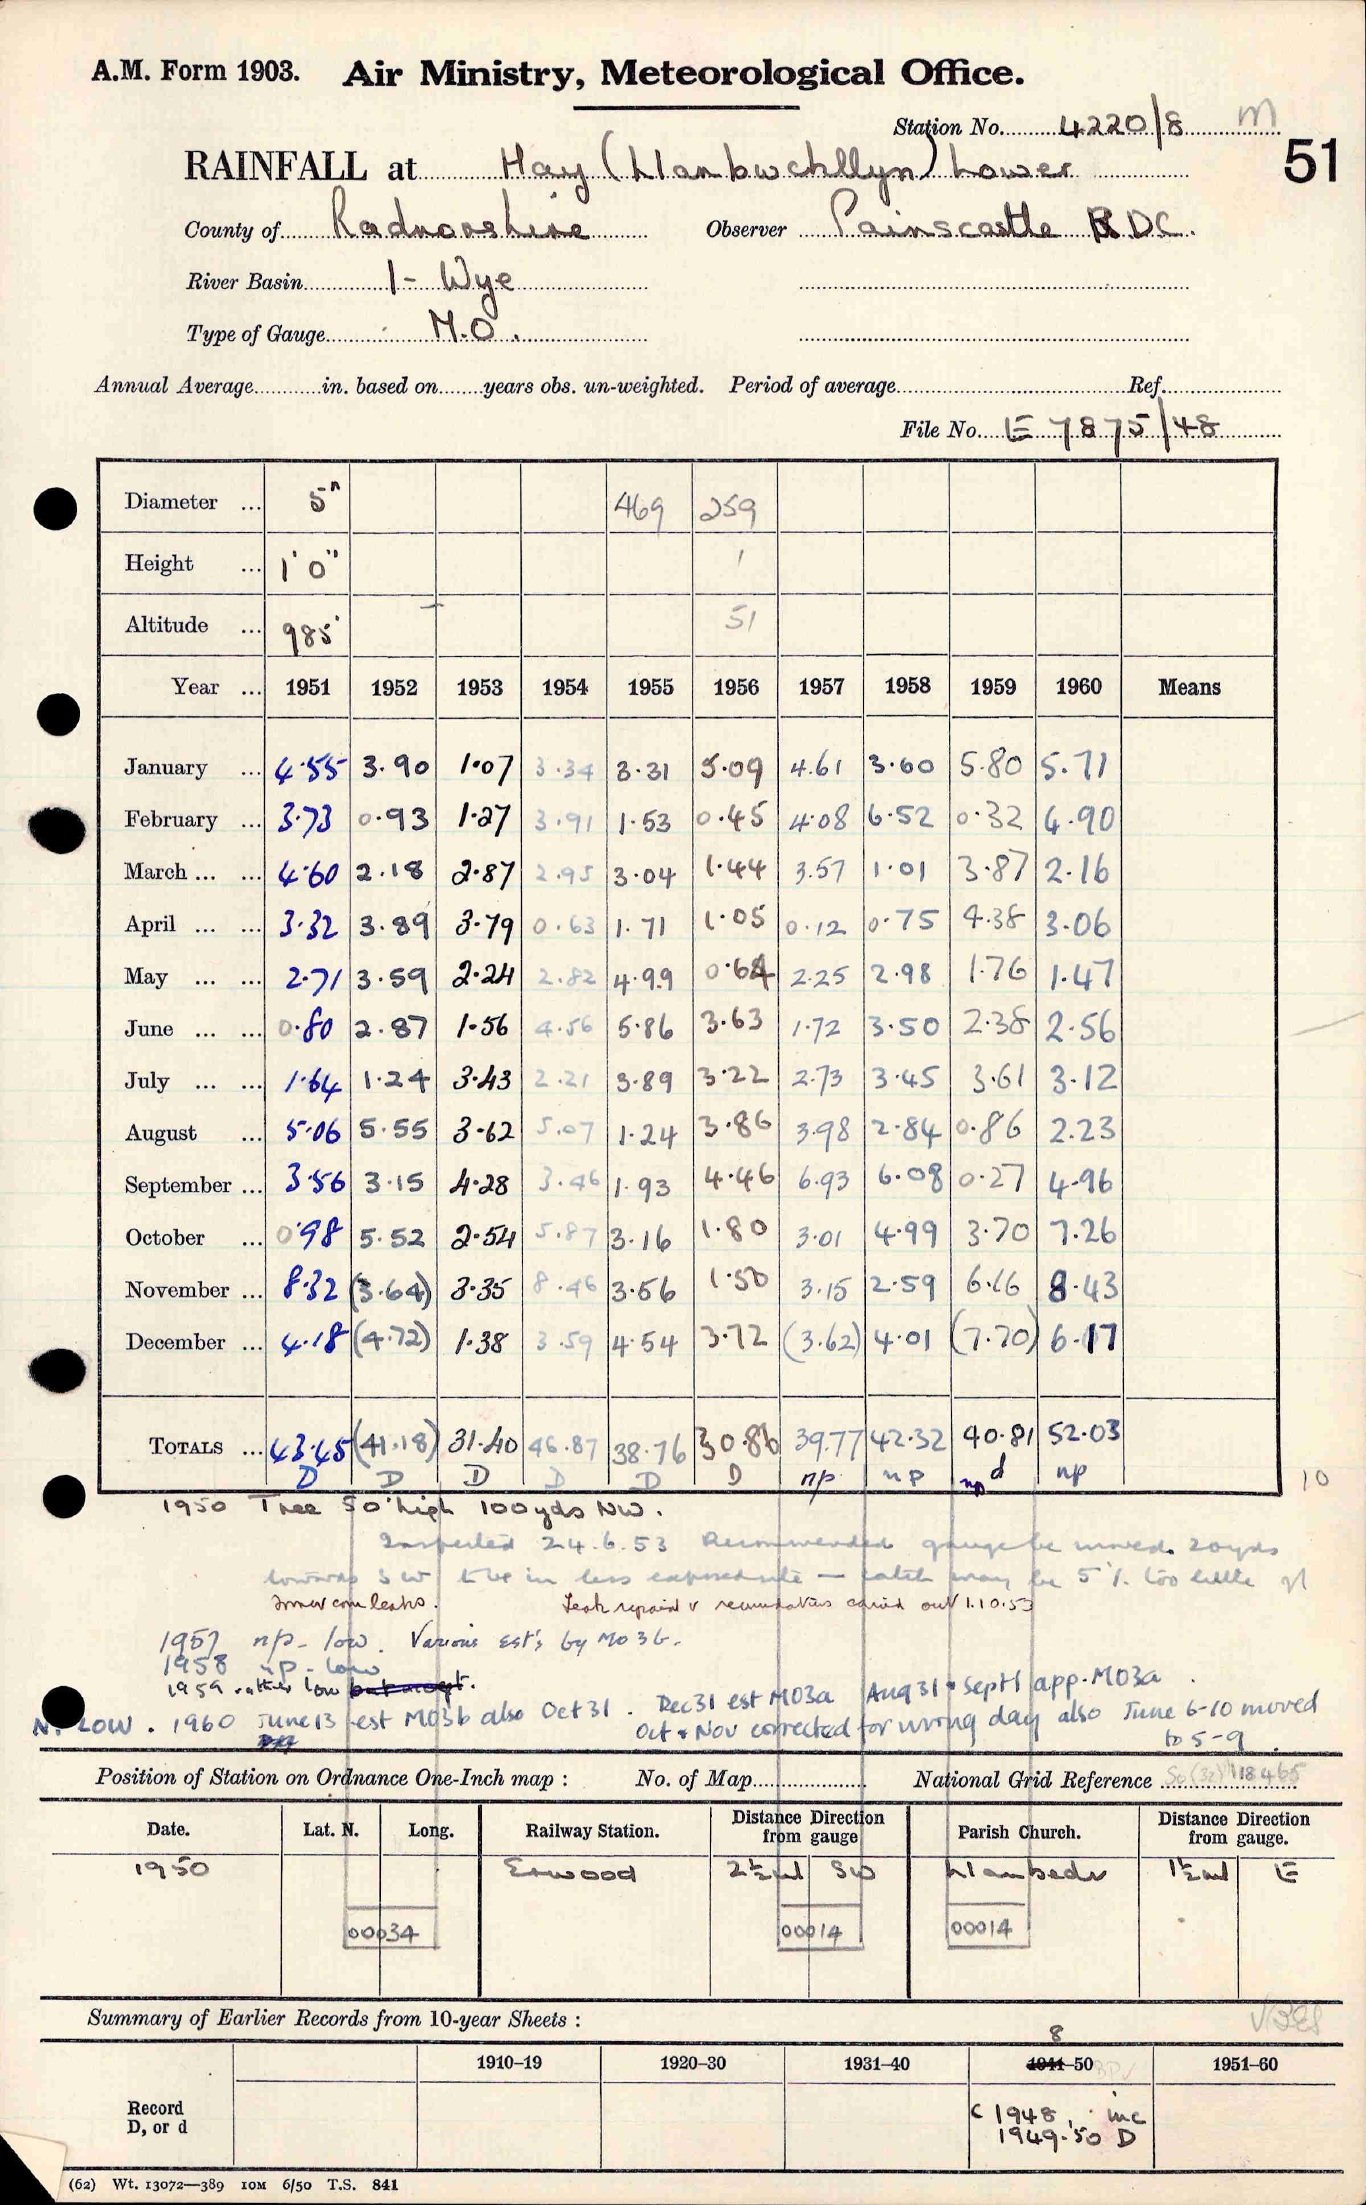 A.M. Form 1903. Air Ministry, Meteorological Office.
Station No. 4220/8 m
51
RAINFALL at Hay (Llanbwchllyn) Lower
County of Radnorshire Observer Painscastle RDC.
River Basin 1- Wye
Type of Gauge M.O.
Annual Average in. based on years obs. un-weighted. Period of average Ref.
File No. E 7875/48
Diameter ... 5" 469 259
Height ... 1' 0" 1
Altitude ... 985' 51
Year ... 1951 1952 1953 1954 1955 1956 1957 1958 1959 1960 Means
January ... 4.55 3.90 1.07 3.34 3.31 5.09 4.61 3.60 5.80 5.71
February ... 3.73 0.93 1.27 3.91 1.53 0.45 4.08 6.52 0.32 4.90
March ... ... 4.60 2.18 2.87 2.95 3.04 1.44 3.57 1.01 3.87 2.16
April ... ... 3.32 3.89 3.79 0.63 1.71 1.05 0.12 0.75 4.38 3.06
May ... ... 2.71 3.59 2.24 2.82 4.99 0.64 2.25 2.98 1.76 1.47
June ... ... 0.80 2.87 1.56 4.56 5.86 3.63 1.72 3.50 2.38 2.56
July ... ... 1.64 1.24 3.43 2.21 3.89 3.22 2.73 3.45 3.61 3.12
August ... 5.06 5.55 3.62 5.07 1.24 3.86 3.98 2.84 0.86 2.23
September ... 3.56 3.15 4.28 3.46 1.93 4.46 6.93 6.08 0.27 4.96
October ... 0.98 5.52 2.54 5.87 3.16 1.80 3.01 4.99 3.70 7.26
November ... 8.32 (3.64) 3.35 8.46 3.56 1.50 3.15 2.59 6.16 8.43
December ... 4.18 (4.72) 1.38 3.59 4.54 3.72 (3.62) 4.01 (7.70) 6.17
TOTALS ... 43.45 (41.18) 31.40 46.87 38.76 30.86 39.77 42.32 40.81 52.03
D D D D D D np np np d np 10
1950 Tree 50' high 100yds NW.
Inspected 24.6.53 Recommended gauge be moved 20yds
towards SW to be in less exposed site — catch may be 5% too little
Inner can leaks. Leak repaired & recommendations carried out 1.10.53
1957 np - low. Various est's by MO3b.
1958 np - low
1959 rather low but accept.
NP LOW. 1960 June 13 est MO3b also Oct 31. Dec 31 est MO3a Aug 31 & Sept 1 app. MO3a.
Oct & Nov corrected for wrong day also June 6-10 moved
to 5-9.
Position of Station on Ordnance One-Inch map : No. of Map National Grid Reference So (32) 118465
Date. Lat. N. Long. Railway Station. Distance Direction from gauge Parish Church. Distance Direction from gauge.
1950 Erwood 2½ml SW Llanbedr 1½ml E
00034 00014 00014
Summary of Earlier Records from 10-year Sheets :
8
1910–19 1920–30 1931–40 1941-50 1951–60
Record
D, or d
c 1948, inc
1949-50 D
(62) Wt. 13072—389 10M 6/50 T.S. 841